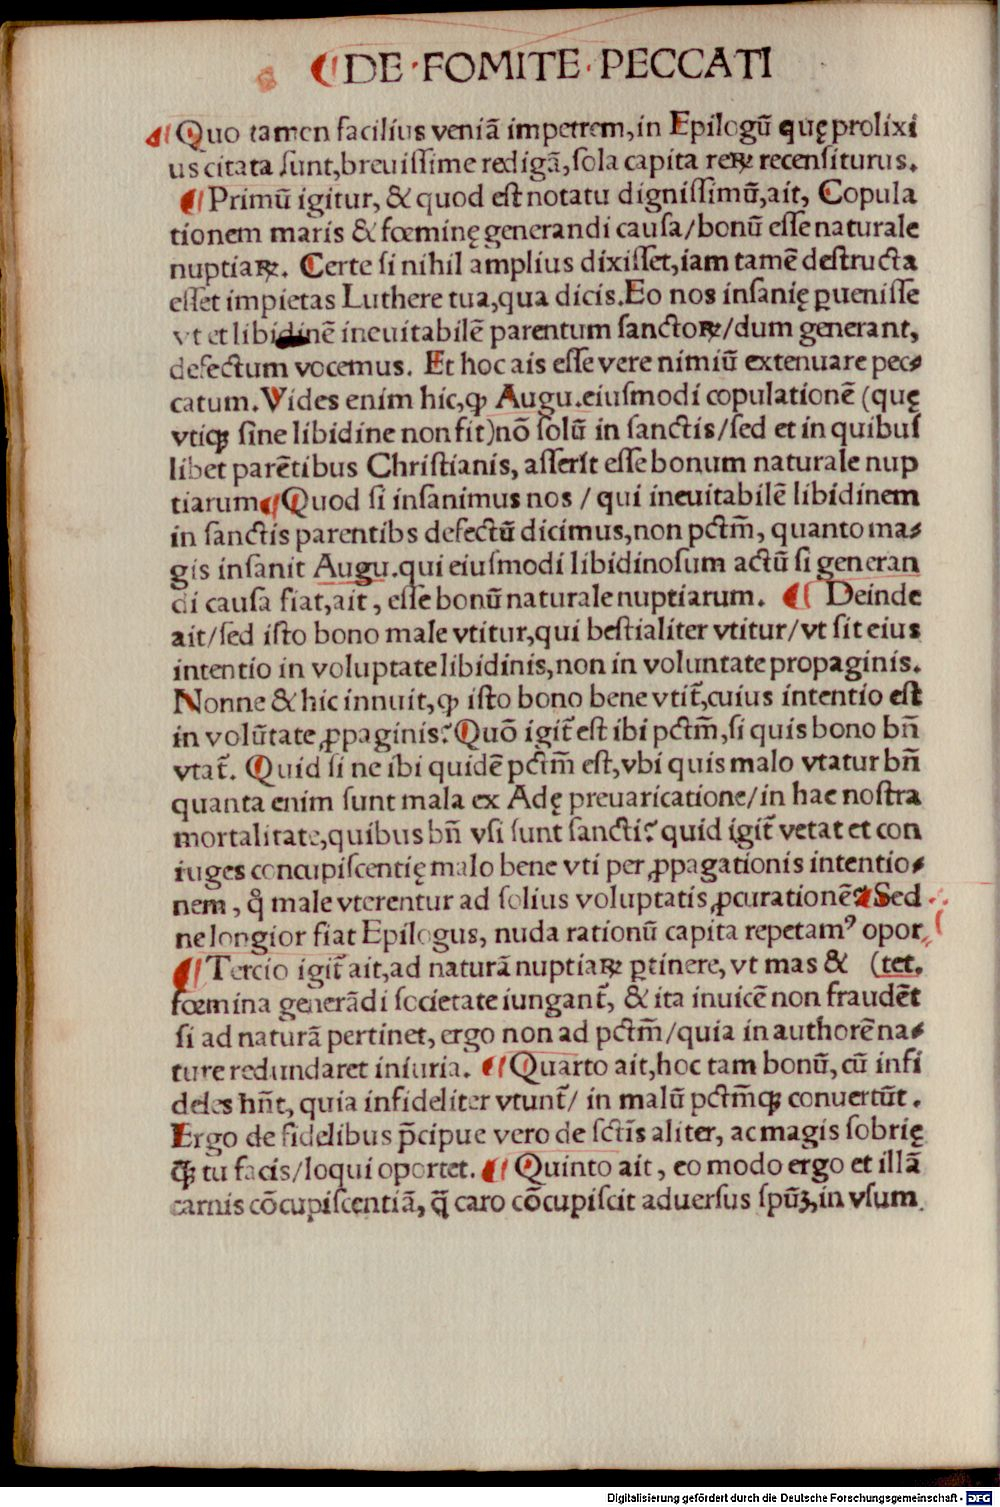 ¶DE·FOMITE·PECCATI
¶Quo tamen facilius veniā impetrem,in Epilogū quę prolixi
us citata sunt,breuissime redigā,sola capita reꝝ recensiturus.
¶Primū igitur, & quod est notatu dignissimū,ait, Copula
tionem maris & fœminę generandi causa/bonū esse naturale
nuptiaꝝ. Certe si nihil amplius dixisset,iam tamē destructa
esset impietas Luthere tua,qua dicis.Eo nos insanię ꝑuenisse
vt et libidinē ineuitabilē parentum sanctoꝝ/dum generant,
defectum vocemus. Et hoc ais esse vere nimiū extenuare pec⸗
catum.Vides enim hic,ꝙ Augu.eiusmodi copulationē (quę
vtiqꝫ sine libidine non fit)nō solū in sanctis/sed et in quibus
libet parētibus Christianis, asserit esse bonum naturale nup
tiarum¶Quod si insanimus nos / qui ineuitabilē libidinem
in sanctis parentibs defectū dicimus,non pctm̄, quanto ma⸗
gis insanit Augu.qui eiusmodi libidinosum actū si generan
di causa fiat,ait, esse bonū naturale nuptiarum. ¶ Deinde
ait/sed isto bono male vtitur,qui bestialiter vtitur/vt sit eius
intentio in voluptate libidinis,non in voluntate propaginis.
Nonne & hic innuit,ꝙ isto bono bene vtit̄,cuius intentio est
in volūtate ꝓpaginis? Quō igit̄ est ibi pctm̄,si quis bono bn̄
vtat̄. Quid si ne ibi quidē pctm̄ est,vbi quis malo vtatur bn̄
quanta enim sunt mala ex Adę preuaricatione/in hac nostra
mortalitate,quibus bn̄ vsi sunt sancti? quid igit̄ vetat et con
iuges concupiscentię malo bene vti per ꝓpagationis intentio⸗
nem, q̊ male vterentur ad solius voluptatis ꝓcurationē? Sed
ne longior fiat Epilogus, nuda rationū capita repetamꝰ opor
¶Tercio igit̄ ait,ad naturā nuptiaꝝ ꝑtinere, vt mas & (tet.
fœmina generādi societate iungant̄, & ita inuicē non fraudēt
si ad naturā pertinet, ergo non ad pctm̄/quia in authorē na⸗
ture redundaret iniuria. ¶Quarto ait,hoc tam bonū, cū infi
deles hn̄t, quia infideliter vtunt̄/ in malū pctm̄qꝫ conuertūt.
Ergo de fidelibus p̄cipue vero de sctis̄ aliter, ac magis sobrię
q̄ꝫ tu facis/loqui oportet. ¶Quinto ait, eo modo ergo et illā
carnis cōcupiscentiā, q̄ caro cōcupiscit aduersus spūꝫ,in vsum
Digitalisierung gefördert durch die Deutsche Forschungsgemeinschaft - DFG